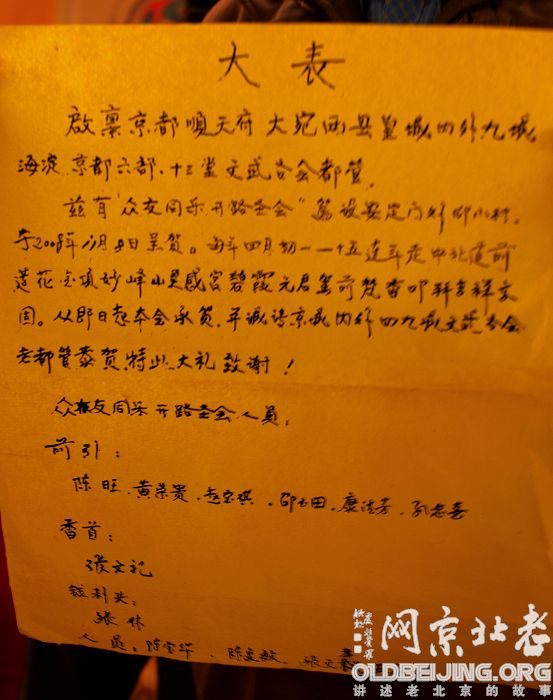 大表
啟禀京都順天府大宛两县皇城内外九城
海淀京都六部、十三堂文武各会都管,
兹有"众友同乐开路圣会"
于2008年 月 日呈贺。每年四月初一一十五连年走中北道前
莲花金顶妙峰山灵感宫碧霞元君驾前焚香叩拜吉祥
。从即日起本会承贺,并诚请京城内外四九城文武各会
老都管恭贺,特此大礼致谢!
众友同乐开路圣会人员:
前引:
陈旺、黄荣贵、田、康
香首:
张文礼
张伟
人员:陈宝华、陈 敏、张文
老北京网
OLDBEIJING.ORG
讲述老北京的故事